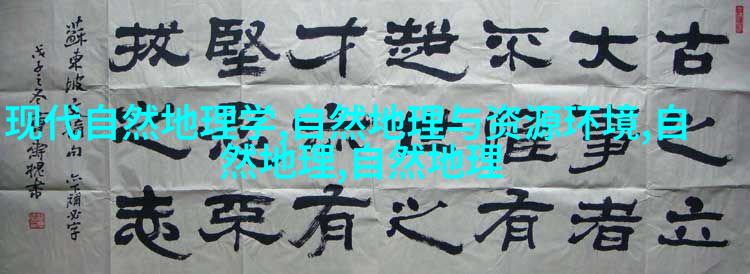 古之立
大事者
不惟有
超之
才有
堅不
拔之志
蘇東坡句
戊子之冬書
现代自然地理学,自然地理与资源环境,自
然地理,自然地理